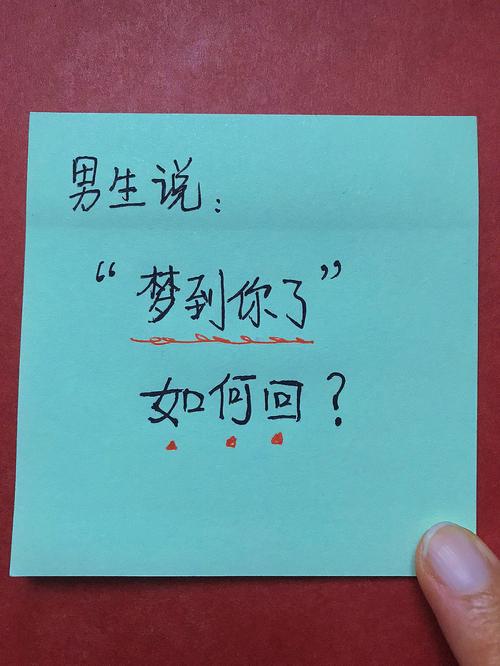 男生说：
“梦到你了”
如何回？